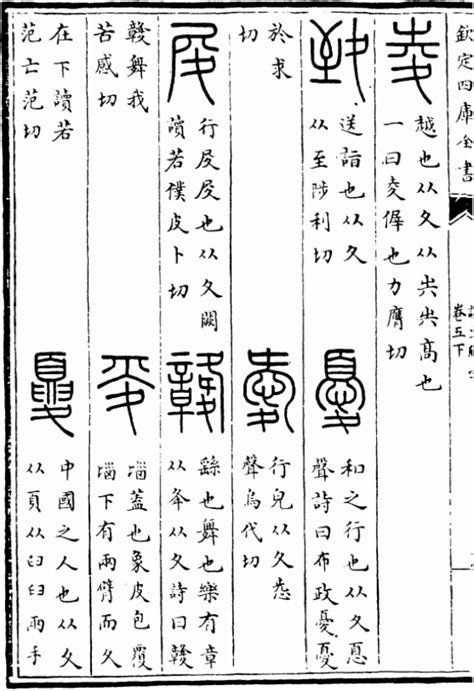 欽定四庫全書
卷五下
夌
越也从夂从𡴆𡴆高也
一曰夌徲也力膺切
致
送詣也从夂
从至陟利切
憂
和之行也从夂㥑
聲詩曰布政憂憂
於求
切
愛
行皃从夂㤅
聲烏代切
𡕒
行𡕒𡕒也从夂闕
讀若僕皮卜切
竷
繇也舞也樂有章
从夅从夂詩曰竷
竷舞我
苦感切
㚇
𡿺蓋也象皮包覆
𡿺下有兩臂而夂
在下讀若
范亡范切
夏
中國之人也从夂
从頁从𦥑𦥑兩手